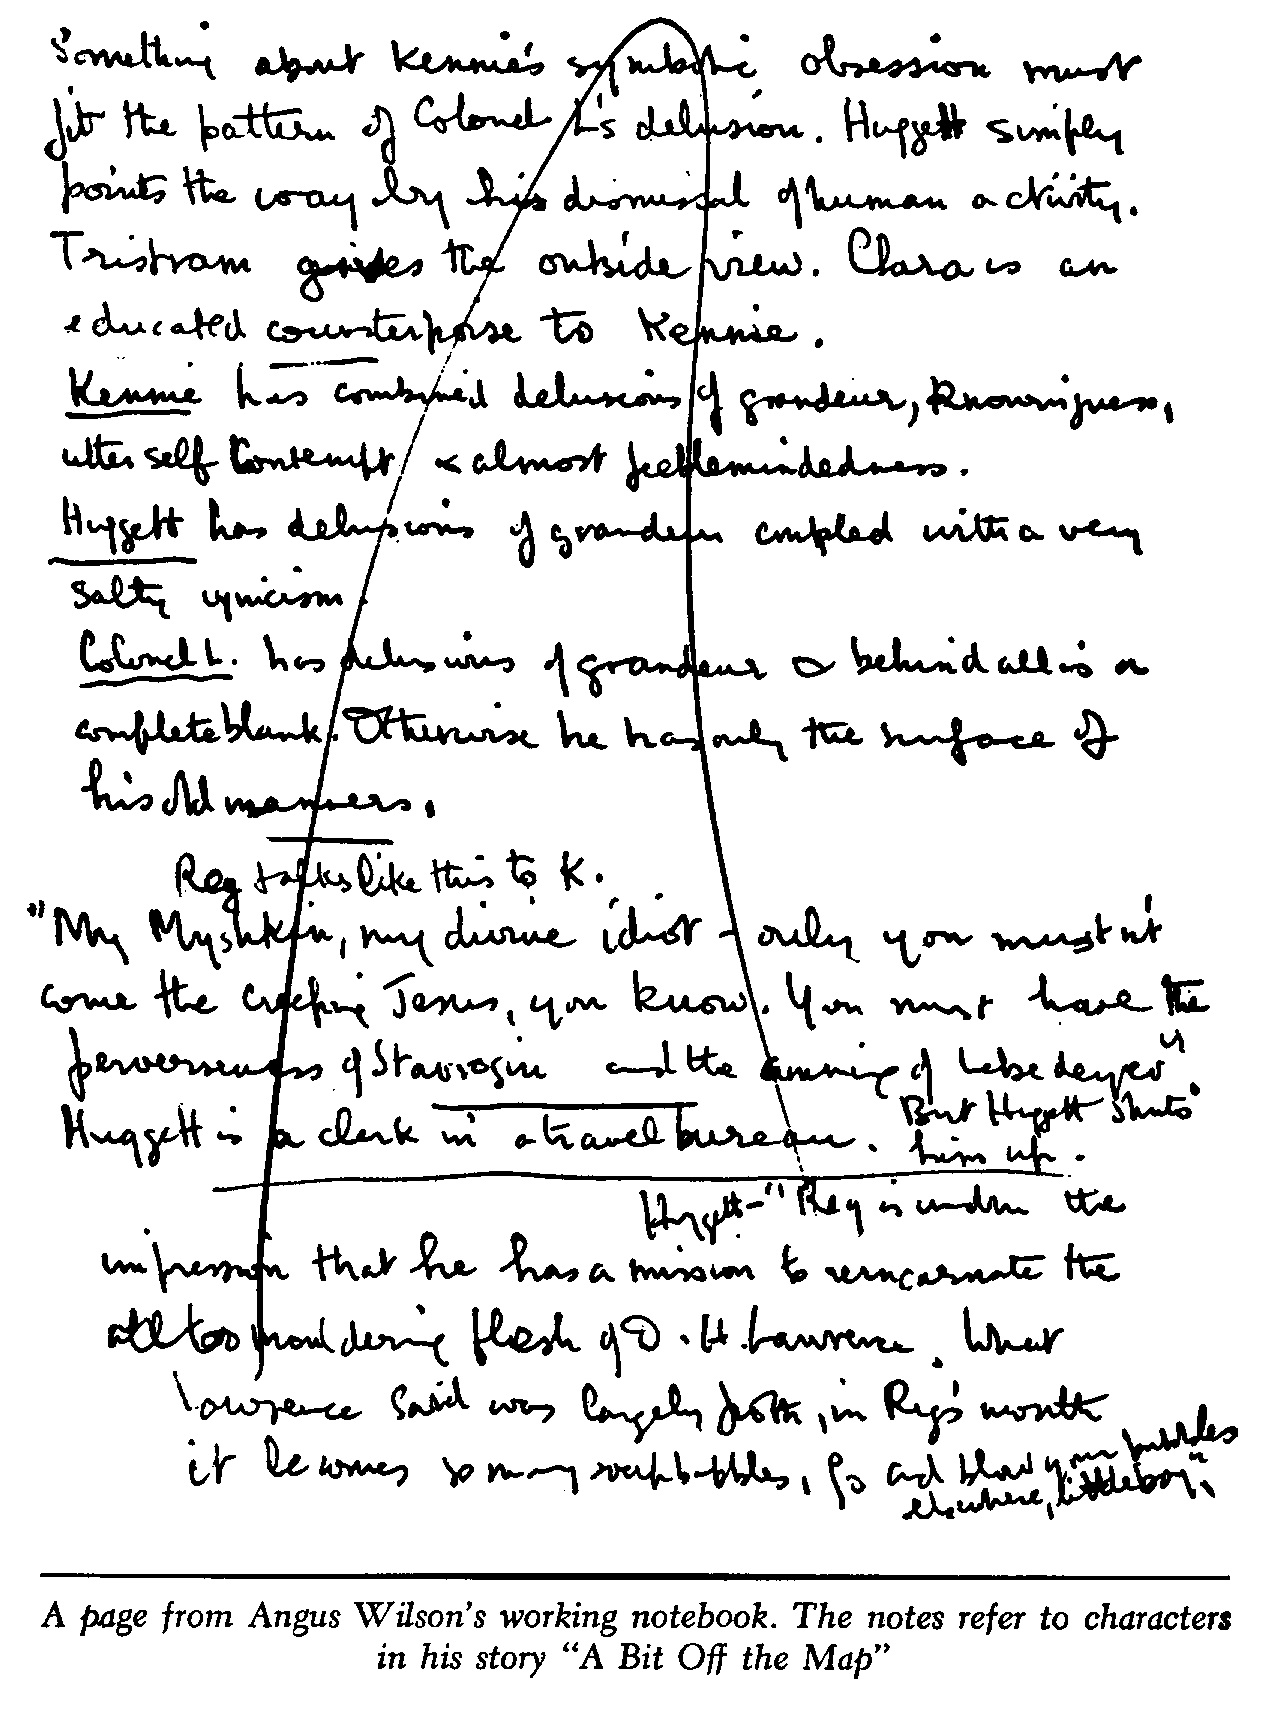 Something about Kennie's symbolic obsession must
fit the pattern of Colonel L's delusion. Huggett simply
points the way by his dismissal of human activity.
Tristram gives the outside view. Clara is an
educated counterpoise to Kennie.
Kennie has combined delusions of grandeur, knowingness,
utter self contempt & almost feeblemindedness.
Huggett has delusions of grandeur coupled with a very
salty cynicism.
Colonel L. has delusions of grandeur & behind all is a
complete blank. Otherwise he has only the surface of
his old manners.
Reg talks like this to K.
"My Myshkin, my divine idiot – only you mustn't
come the creeping Jesus, you know. You must have the
perverseness of Stavrogin and the cunning of Lebedeyev"
Huggett is a clerk in a travel bureau. But Huggett shuts
him up.
Huggett – "Reg is under the
impression that he has a mission to reincarnate the
all too mouldering flesh of D. H. Lawrence. What
Lawrence said was largely froth, in Reg's mouth
it becomes so many soapbubbles, go and blow your bubbles
elsewhere, little boy".
A page from Angus Wilson's working notebook. The notes refer to characters
in his story "A Bit Off the Map"